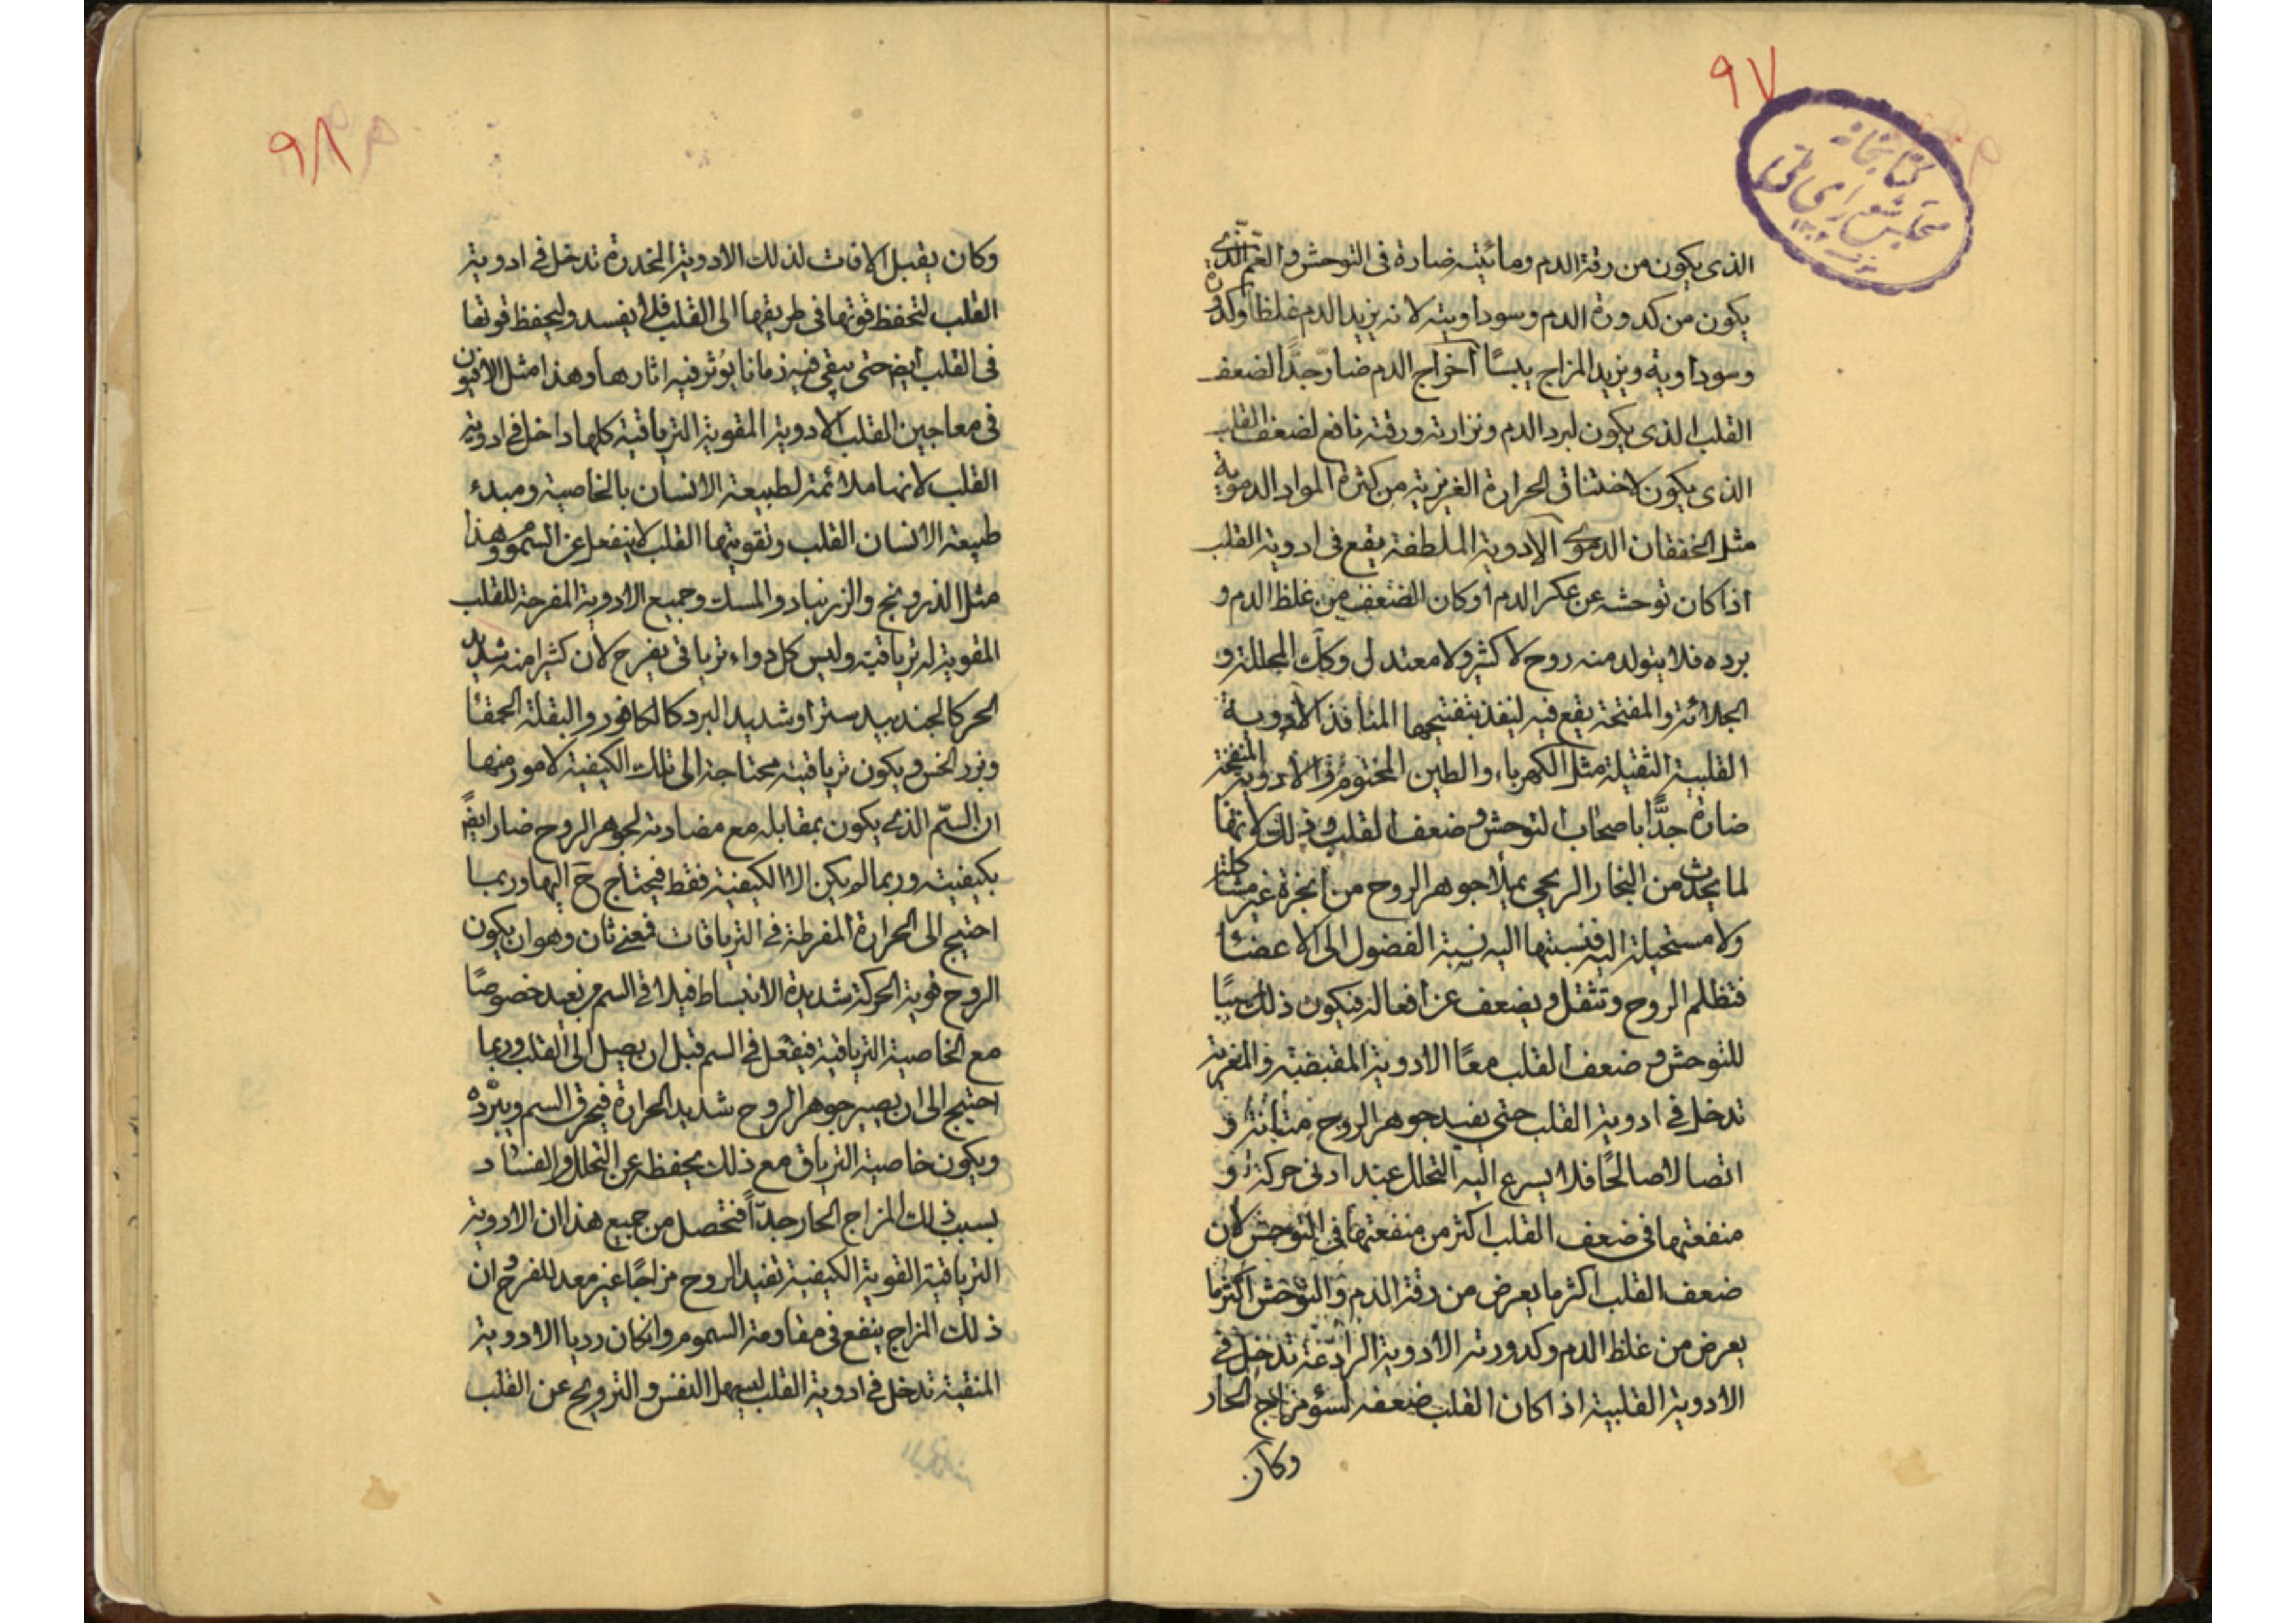 ٩٧
كتابخانه
مجلس شورای ملی
الذى يكون من رقة الدم ومائيته ضارة فى التوحش والغم الذى
يكون من كدورة الدم وسوداويته لانه يزيد الدم غلظا وكدورة
وسوداوية ويزيد المزاج يبسًا اخراج الدم ضار جدًّا لضعف
القلب الذى يكون لبرد الدم ونزارته ورقته نافع لضعف القلب
الذى يكون لاختناق الحرارة الغريزية من كثرة المواد الدموية
مثل الخفقان الدموى الادوية الملطفة يقع فى ادوية القلب
اذا كان توحشه عن عكر الدم او كان الضعف من غلظ الدم و
برده فلا يتولد منه روح لا كثير ولا معتدل وكك المحللة و
الجلائة والمفتحة يقع فيه لينفذ بتفتيحها المنافذ الادوية
القلبية الثقيلة مثل الكهرباء والطين المختوم والادوية المنفخة
ضارة جدًّا باصحاب التوحش وضعف القلب وذلك لانها
لما يحدث من البخار الريحى يملأ جوهر الروح من ابخرة غير مشاكلة
ولا مستحيلة اليه فنسبتها اليه نسبة الفضول الى الاعضاء
فتظلم الروح وتثقل ويضعف عن افعاله فيكون ذلك سببًا
للتوحش وضعف القلب معًا الادوية المقبضية والمغرية
تدخل فى ادوية القلب حتى يفيد جوهر الروح متانة و
اتصالا صالحًا فلا يسرع اليه التحلل عند ادنى حركة و
منفعتها فى ضعف القلب اكثر من منفعتها فى التوحش لان
ضعف القلب اكثر ما يعرض من رقة الدم والتوحش اكثر ما
يعرض من غلظ الدم وكدورته الادوية الرادعة تدخل فى
الادوية القلبية اذا كان القلب ضعفه لسؤ مزاج الحار
وكان
٩٨
وكان يقبل الافات لذلك الادوية المخدرة تدخل فى ادوية
القلب لتحفظ قوتها فى طريقها الى القلب فلا يفسد وليحفظ قوتها
فى القلب ايضا حتى يبقى فيه زمانا يؤثر فيه اثارها وهذا مثل الافيون
فى معاجين القلب الادوية المقوية الترياقية كلها داخل فى ادوية
القلب لانها ملائمة لطبيعة الانسان بالخاصية ومبدء
طبيعة الانسان القلب وتقويتها القلب لا ينفعل عن السموم وهذا
مثل الذرونج والزرنباد والمسك وجميع الادوية المفرحة للقلب
المقوية له ترياقية وليس كل دواء ترياقى يفرح لان كثيرا منه شديد
الحر كالجندبيدستر او شديد البرد كالكافور والبقلة الحمقا
وبزر الخس ويكون ترياقيته محتاجة الى تلك الكيفية لامور منها
ان السّم الذى يكون بمقابله مع مضادته لجوهر الروح ضار ايضً
بكيفيته وربما لم يكن الا الكيفية فقط فيحتاج ح اليها وربما
احتيج الى الحرارة المفرطة فى الترياقات فمعنى ثان وهو ان يكون
الروح قوية الحركة شديدة الانبساط فيلاقى السم من بعيد خصوصًا
مع الخاصية الترياقية فيفعل فى السم قبل ان يصل الى القلب وربما
احتيج الى ان يصير جوهر الروح شديد الحرارة فيحرق السم ويبرّده
ويكون خاصية الترياق مع ذلك يحفظه عن التحلل والفساد
بسبب ذلك المزاج الحار جدّاً فتحصل من جميع هذا ان الادوية
الترياقية القوية الكيفية تفيد الروح مزاجًا غير معد للفرح وان
ذلك المزاج ينفع فى مقاومة السموم وان كان رديا الادوية
المنقية تدخل فى ادوية القلب ليسهل النفس والترويح عن القلب